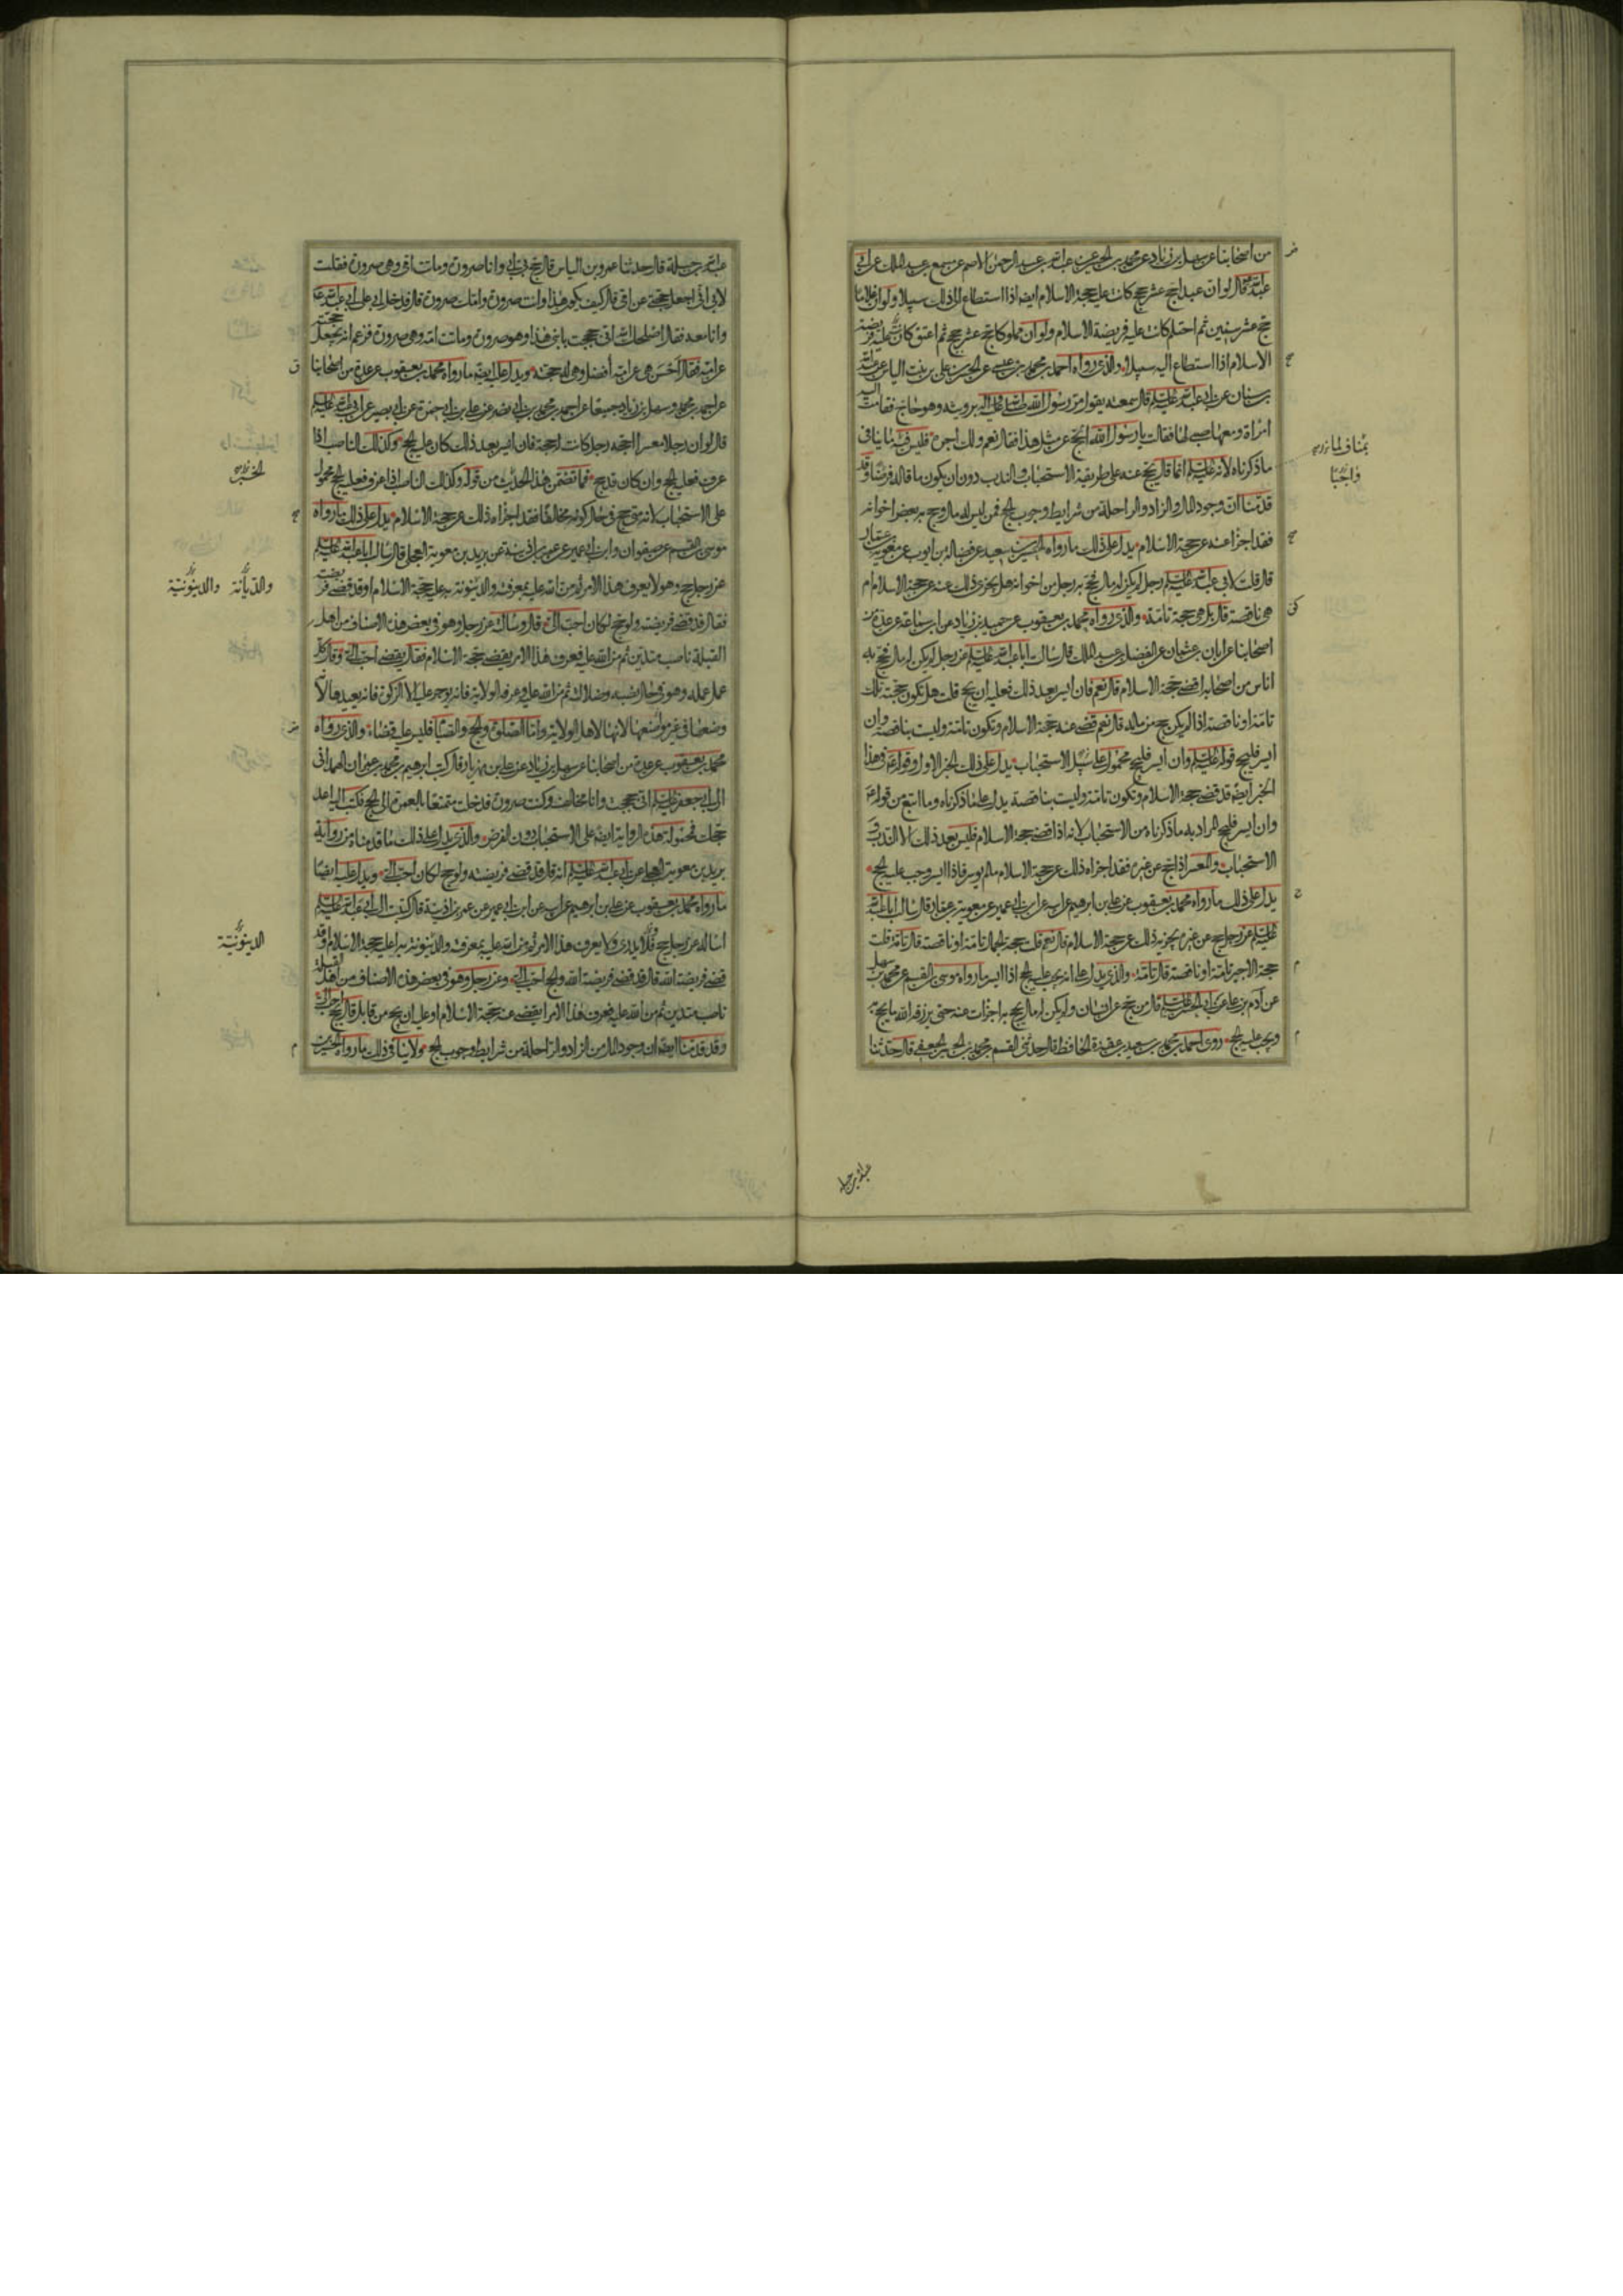 من اصحابنا عن سهل بن زياد عن محمد بن الحسن عن عبد الله بن عبد الرحمن الاصم عن مسمع بن عبد الملك عن ابى
عبد الله ع قال لو ان عبدا حج عشر حجج كانت عليه حجة الاسلام ايضا اذا استطاع الى ذلك سبيلا ولو ان غلاما
حج عشر سنين ثم احتلم كانت عليه فريضة الاسلام ولو ان مملوكا حج عشر حجج ثم اعتق كانت عليه فريضة
الاسلام اذا استطاع اليه سبيلا والذى رواه احمد بن محمد بن عيسى عن الحسن بن على بن بنت الياس عن عبد الله
بن سنان عن ابى عبد الله عليه السلم قال سمعته يقول مر رسول الله صلى الله عليه وآله برويثة وهو حاج فقامت اليه
امراة ومعها صبى لها فقالت يا رسول الله ايحج عن مثل هذا فقال نعم ولك اجره فليس فيه ما ينافى
ما ذكرناه لانه عليه السلم انما قال يحج عنه على طريقة الاستحباب والندب دون ان يكون ما قاله فرضا وقد
قدمنا ان وجود المال والزاد والراحلة من شرايط وجوب الحج فمن ليس له مال وحج به بعض اخوانه
فقد اجزا عنه عن حجة الاسلام يدل على ذلك ما رواه الحسين بن سعيد عن فضالة بن ايوب عن معوية بن عمار
قال قلت لابى عبد الله عليه السلم رجل لم يكن له مال فحج به رجل من اخوانه هل يجزى ذلك عنه عن حجة الاسلام ام
هى ناقصة قال بل هى حجة تامة والذى رواه محمد بن يعقوب عن حميد بن زياد عن ابن سماعة عن عدة من
اصحابنا عن ابان بن عثمان عن الفضل بن عبد الملك قال سالت ابا عبد الله عليه السلم عن رجل لم يكن له مال فحج به
اناس من اصحابه اقضى حجة الاسلام قال نعم فان ايسر بعد ذلك فعليه ان يحج قلت هل تكون حجته تلك
تامة او ناقصة اذا لم يكن حج من ماله قال نعم قضى عنه حجة الاسلام وتكون تامة وليست بناقصة وان
ايسر فليحج قوله عليه السلم وان ايسر فليحج محمول على سبيل الاستحباب يدل على ذلك الخبر الاول وقوله ع فى هذا
الخبر ايضا قد قضى حجة الاسلام وتكون تامة وليست بناقصة يدل على ما ذكرناه وما اتبع من قوله ع
وان ايسر فليحج المراد به ما ذكرناه من الاستحباب لانه اذا قضى حجة الاسلام فليس بعد ذلك الا الندب و
الاستحباب والمعسر اذا حج عن غيره فقد اجزاه ذلك عن حجة الاسلام ما لم يوسر فاذا ايسر وجب عليه الحج
يدل على ذلك ما رواه محمد بن يعقوب عن على بن ابرهيم عن ابيه عن ابن ابى عمير عن معوية بن عمار قال سالت ابا عبد الله
عليه السلم عن رجل حج عن غيره يجزيه ذلك عن حجة الاسلام قال نعم قلت حجة الجمال تامة او ناقصة قال تامة قلت
حجة الاجير تامة او ناقصة قال تامة والذى يدل على انه يجب عليه الحج اذا ايسر ما رواه موسى بن القسم عن محمد بن سهل
عن آدم بن على عن ابى الحسن عليه السلم قال من حج عن انسان ولم يكن له مال يحج به اجزات عنه حتى يرزقه الله ما يحج به
ويجب عليه الحج روى احمد بن محمد بن سعيد بن عقدة الحافظ قال حدثنى القسم بن محمد بن الحسين الجعفى قال حدثنا
بمناف لما
واجبا
عبد الله بن جبلة
عبد الله بن جبلة قال حدثنا عمرو بن الياس قال حج بى ابى وانا صرورة وماتت امى وهى صرورة فقلت
لابى انى اجعل حجتى عن امى قال كيف يكون هذا وانت صرورة وامك صرورة قال فدخل ابى على ابى عبد الله ع
وانا معه فقال اصلحك الله انى حججت بابنى هذا وهو صرورة وماتت امه وهى صرورة فزعم انه يجعل حجته
عن امه فقال احسن هى عن امه افضل وهى له حجة ويدل عليه ايضا ما رواه محمد بن يعقوب عن عدة من اصحابنا
عن احمد بن محمد وسهل بن زياد جميعا عن احمد بن محمد بن ابى نصر عن على بن ابى حمزة عن ابى بصير عن ابى عبد الله عليه السلم
قال لو ان رجلا معسرا احجه رجل كانت له حجة فان ايسر بعد ذلك كان عليه الحج وكذلك الناصب اذا
عرف فعليه الحج وان كان قد حج فما تضمن هذا الحديث من قوله وكذلك الناصب اذا عرف فعليه الحج محمول
على الاستحباب لانه متى حج فى حال كونه مخالفا فقد اجزاه ذلك عن حجة الاسلام يدل على ذلك ما رواه
موسى بن القسم عن صفوان وابن ابى عمير عن عمر بن اذينة عن بريد بن معوية العجلى قال سالت ابا عبد الله عليه السلم
عن رجل حج وهو لا يعرف هذا الامر ثم من الله عليه بمعرفته والدينونة به عليه حجة الاسلام او قد قضى فريضته
فقال قد قضى فريضته ولو حج لكان احب الى قال وسالته عن رجل وهو فى بعض هذه الاصناف من اهل
القبلة ناصب متدين ثم من الله عليه فعرف هذا الامر يقضى حجة الاسلام فقال يقضى احب الى وقال كل
عمل عمله وهو فى حال نصبه وضلالته ثم من الله عليه وعرفه الولاية فانه يوجر عليه الا الزكوة فانه يعيدها لانه
وضعها فى غير موضعها لانها لاهل الولاية واما الصلوة والحج والصيام فليس عليه قضاء والذى رواه
محمد بن يعقوب عن عدة من اصحابنا عن سهل بن زياد عن على بن مهزيار قال كتب ابرهيم بن محمد بن عمران الهمدانى
الى ابى جعفر عليه السلم انى حججت وانا مخالف وكنت صرورة فدخلت متمتعا بالعمرة الى الحج فكتب اليه اعد
حجك فمحمولة هذه الرواية ايضا على الاستحباب دون الفرض والذى يدل على ذلك ما قدمناه من رواية
بريد بن معوية العجلى عن ابى عبد الله عليه السلم انه قال قد قضى فريضته ولو حج لكان احب الى ويدل عليه ايضا
ما رواه محمد بن يعقوب عن على بن ابرهيم عن ابيه عن ابن ابى عمير عن عمر بن اذينة قال كتبت الى ابى عبد الله عليه السلم
اساله عن رجل حج ولا يدرى ولا يعرف هذا الامر ثم من الله عليه بمعرفته والدينونة به اعليه حجة الاسلام او قد
قضى فريضة الله قال قد قضى فريضة الله والحج احب الى وعن رجل وهو فى بعض هذه الاصناف من اهل القبلة
ناصب متدين ثم من الله عليه فعرف هذا الامر ايقضى عنه حجة الاسلام او عليه ان يحج من قابل قال يحج احب الى
وقد قدمنا ايضا ان وجود المال من الزاد والراحلة من شرايط وجوب الحج ولا ينافى ذلك ما رواه الحسين
الخبر
والديانة والدينونية
الدينونية